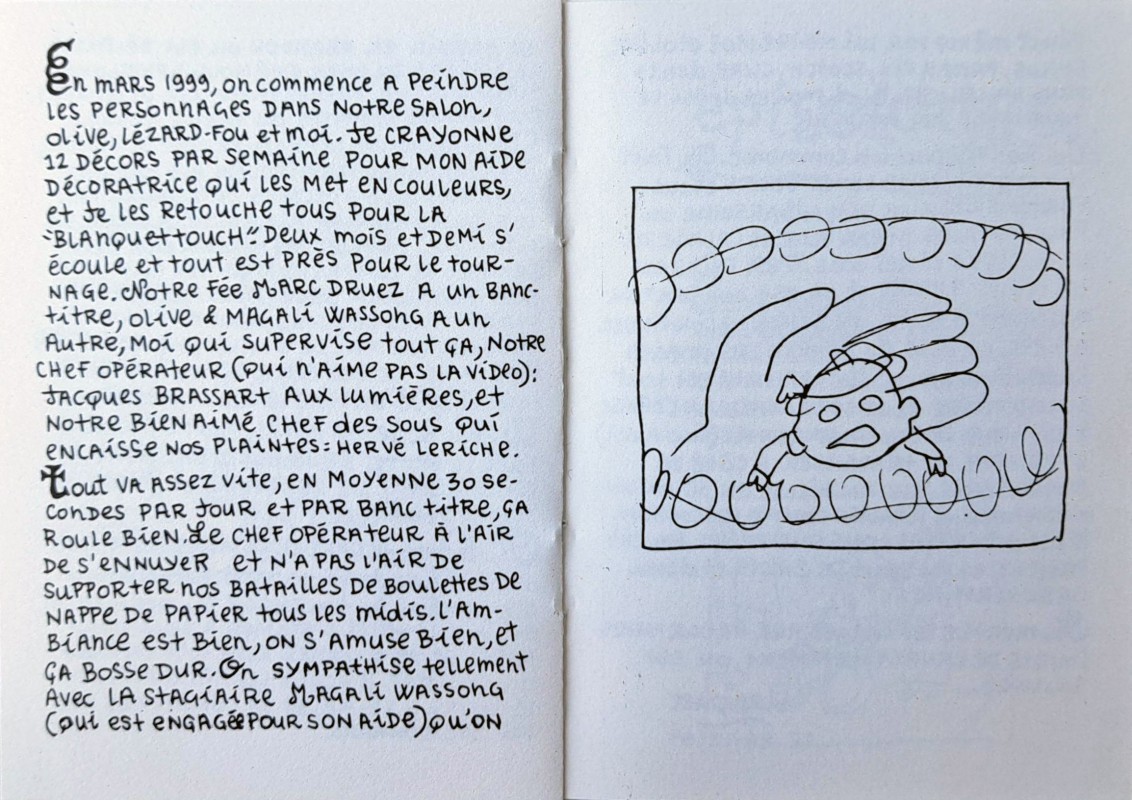 En mARS 1999, on commence A PeinDRe
Les PeRSonnAGes DAnS NotRe SALon,
oLive, LéZARD-Fou et moi. Je CRAYONNE
12 DéCORS PAR SemAine POUR MON AiDe
DéCORATRiCe Qui Les Met en CouLeuRS,
et Je Les RetouCHe tous POUR LA
"BLAnQuettouCH". Deux mois et Demi S'
écouLe et tout est PRèS POUR Le touR-
NAGe. NotRe Fée MARC DRueZ A un BAnC-
titRe, oLive & MAGALi WASSonG A un
AutRe, Moi Qui SuPeRvise tout ÇA, NotRe
CHeF oPéRAteuR (Qui n'Aime PAS LA viDéo):
JACQues BRASSARt Aux Lumières, et
NotRe Bien Aimé CHeF des Sous Qui
enCAiSSe noS PLAinteS: HeRvé LeRiCHe.
tout vA Assez vite, en Moyenne 30 Se-
ConDes PAR JouR et PAR BAnC titRe, ÇA
RouLe Bien. Le CHeF oPéRAteuR À L'AiR
De S'ennuyeR et N'A PAS L'AiR De
SuPPoRteR nos BAtAiLLes De BouLettes De
NAPPe De PAPieR tous Les midis. L'Am-
BiAnCe est Bien, on S'Amuse Bien, et
ÇA BoSSe DuR. On SYMPAtHise teLLement
AveC LA StAGiAiRe MAGALi WASSonG
(Qui est enGAGée PouR Son AiDe) Qu'on